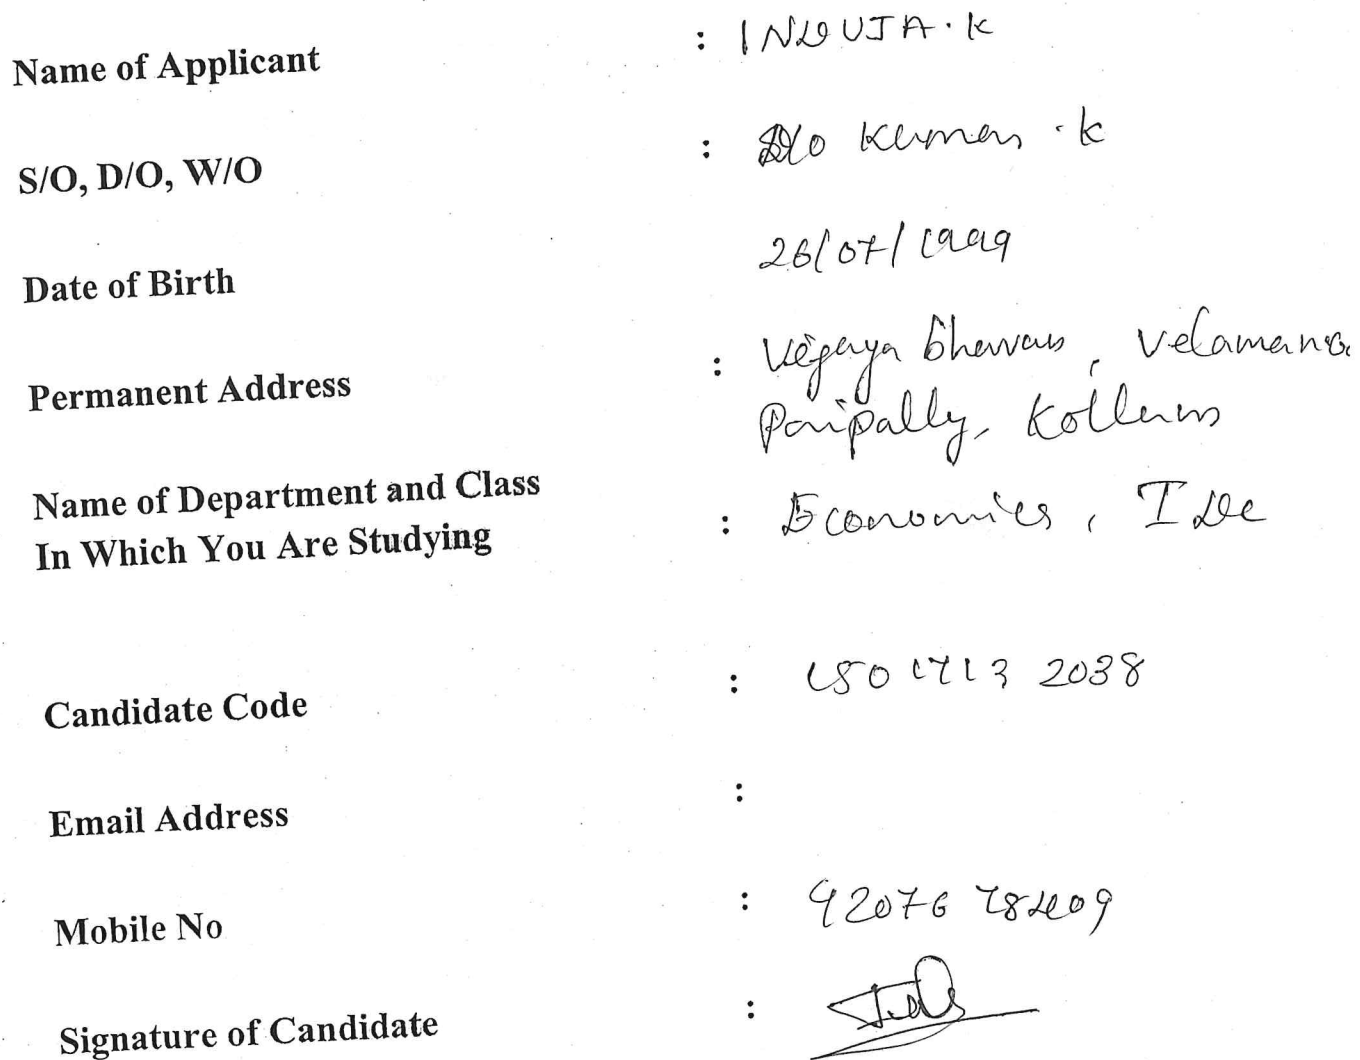 Name of Applicant : INDUJA.K
S/O, D/O, W/O : D/o Kumar .k
Date of Birth 26/07/1999
Permanent Address : Vijaya Bhavan, Velamano
Paripally, Kollam
Name of Department and Class
In Which You Are Studying : Economics, I DC
Candidate Code : 150 1713 2038
Email Address :
Mobile No : 92076
Signature of Candidate :